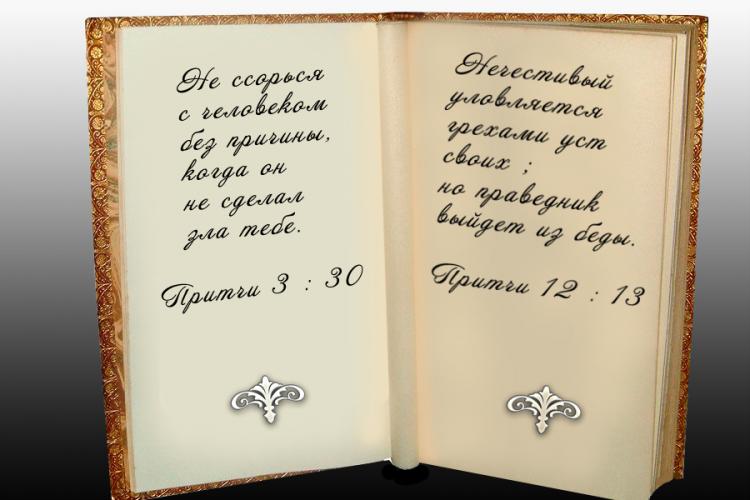 Не ссорься
с человеком
без причины,
когда он
не сделал
зла тебе.
Притчи 3 : 30
Нечестивый
уловляется
грехами уст
своих ;
но праведник
выйдет из беды.
Притчи 12 : 13